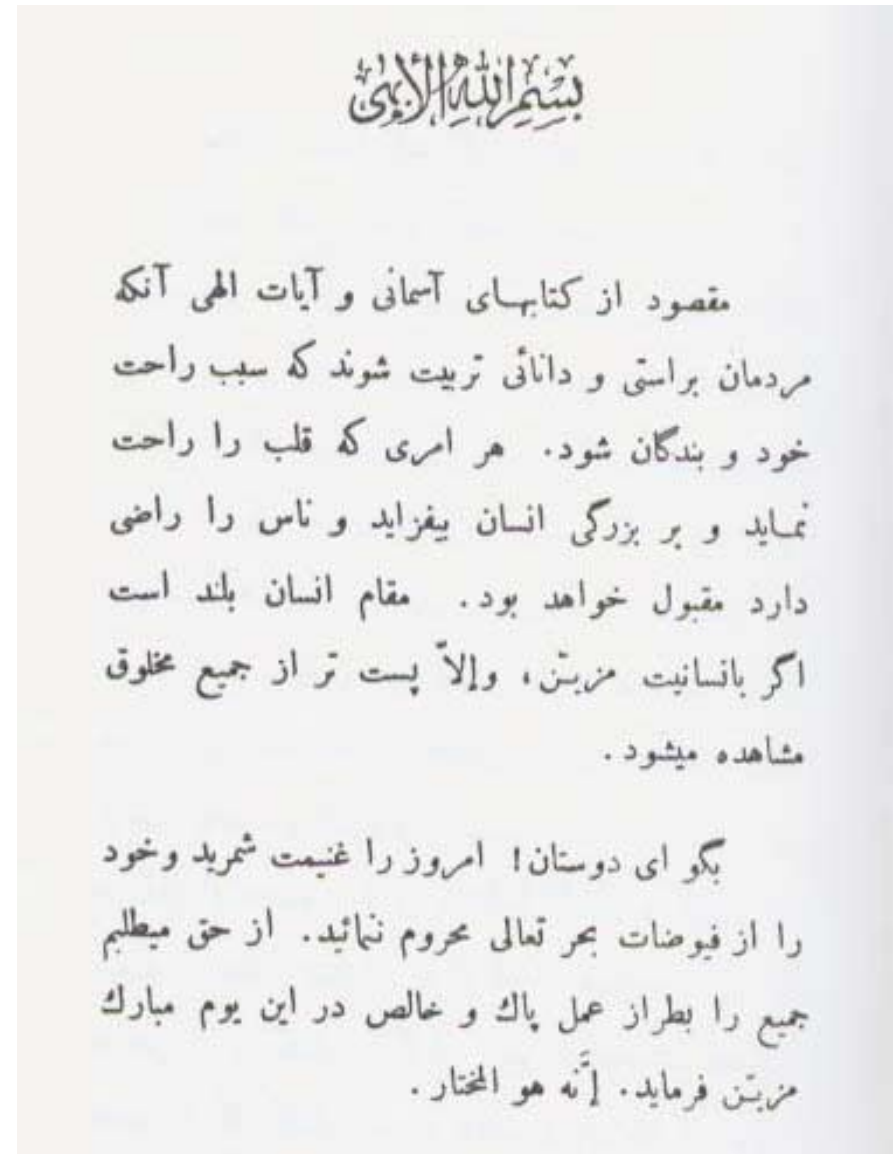 بِسْمِ اللّٰهِ الْأَبْهٰی
مقصود از کتابهای آسمانی و آیات الهی آنکه
مردمان براستی و دانائی تربیت شوند که سبب راحت
خود و بندگان شود. هر امری که قلب را راحت
نماید و بر بزرگی انسان بیفزاید و ناس را راضی
دارد مقبول خواهد بود. مقام انسان بلند است
اگر بانسانیت مزیّن، وإلاّ پست تر از جمیع مخلوق
مشاهده میشود.
بگو ای دوستان! امروز را غنیمت شمرید وخود
را از فیوضات بحر تعالی محروم ننمائید. از حق میطلبم
جمیع را بطراز عمل پاك و خالص در این یوم مبارك
مزیّن فرماید. إنَّه هو المختار.